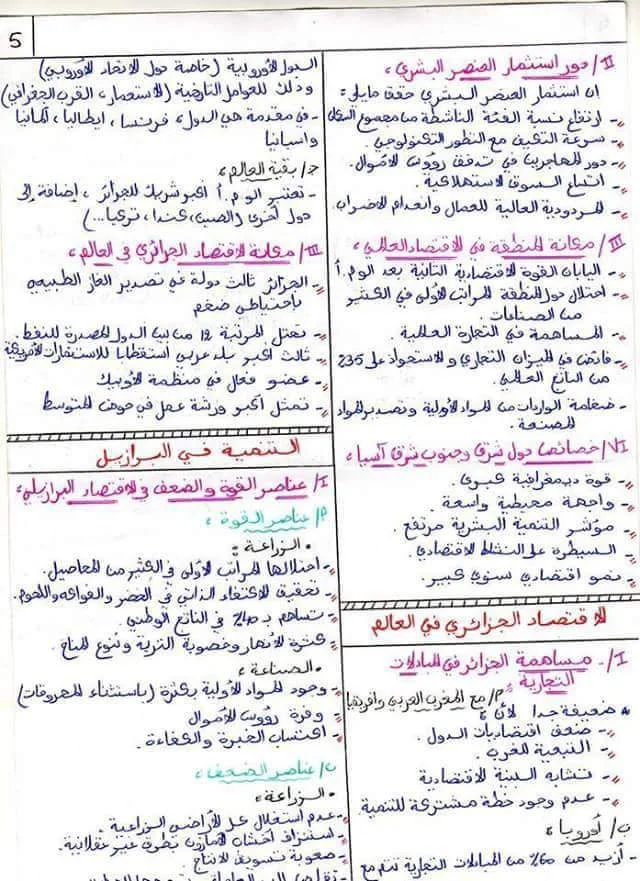 5
II/ دور استثمار العنصر البشري :
إن استثمار العنصر البشري حقق مايلي :
- ارتفاع نسبة الفئة الناشطة من مجموع السكان
- سرعة التكيف مع التطور التكنولوجي.
- دور المهاجرين في تدفق رؤوس الأموال.
- اتساع السوق الاستهلاكية.
- المردودية العالية للعمال وانعدام الاضراب.
III/ مكانة المنطقة في الاقتصاد العالمي :
- اليابان القوة الاقتصادية الثانية بعد الو.م.أ
- احتلال دول المنطقة المراتب الأولى في الكثير
من الصناعات.
- المساهمة في التجارة العالمية.
- فائض في الميزان التجاري والاستحواذ على 23%
من الناتج العالمي.
- ضخامة الواردات من المواد الأولية وتصدير المواد
المصنعة.
VI/ خصائص دول شرق وجنوب شرق آسيا :
- قوة ديمغرافية كبرى.
- واجهة محيطية واسعة.
- مؤشر التنمية البشرية مرتفع.
- السيطرة على النشاط الاقتصادي.
- نمو اقتصادي سنوي كبير.
الاقتصاد الجزائري في العالم
I/- مساهمة الجزائر في المبادلات
التجارية :
أ/ مع المغرب العربي وافريقيا
* ضعيفة جدا لأن :
- ضعف اقتصاديات الدول.
- التبعية للغرب.
- تشابه البنية الاقتصادية
- عدم وجود خطة مشتركة للتنمية.
ب/ أوروبا :
- أزيد من 60% من المبادلات التجارية تتم مع
الدول الأوروبية (خاصة دول الاتحاد الأوروبي)
وذلك للعوامل التاريخية (الاستعمار، القرب الجغرافي)
- في مقدمة هي الدول، فرنسا، ايطاليا، ألمانيا
واسبانيا
ج/ بقية العالم :
- تعتبر الو.م.أ أكبر شريك للجزائر، إضافة إلى
دول أخرى (الصين، كندا، تركيا...)
III/ مكانة الاقتصاد الجزائري في العالم :
- الجزائر ثالث دولة في تصدير الغاز الطبيعي
باحتياطي ضخم
- تحتل المرتبة 12 من بين الدول المصدرة للنفط.
- ثالث أكبر بلد عربي استقطابا للاستثمارات الأمريكية
- عضو فعال في منظمة الأوبيك
- تمثل أكبر ورشة عمل في حوض المتوسط
التنمية في البرازيل
I/ عناصر القوة والضعف في الاقتصاد البرازيلي :
أ/ عناصر القوة :
• الزراعة :
- احتلالها المراتب الأولى في الكثير من المحاصيل.
- تحقيق الاكتفاء الذاتي في الخضر والفواكه واللحوم.
- تساهم بـ 40% في الناتج الوطني
- كثرة الأنهار وخصوبة التربة وتنوع المناخ.
• الصناعة :
- وجود المواد الأولية بكثرة (باستثناء المحروقات)
- وفرة رؤوس الأموال
- اكتساب الخبرة والكفاءة.
ب/ عناصر الضعف :
• الزراعة :
- عدم استغلال كل الأراضي الزراعية.
- استنزاف أخشاب الأمازون بطرق غير عقلانية.
- صعوبة تسويق الانتاج